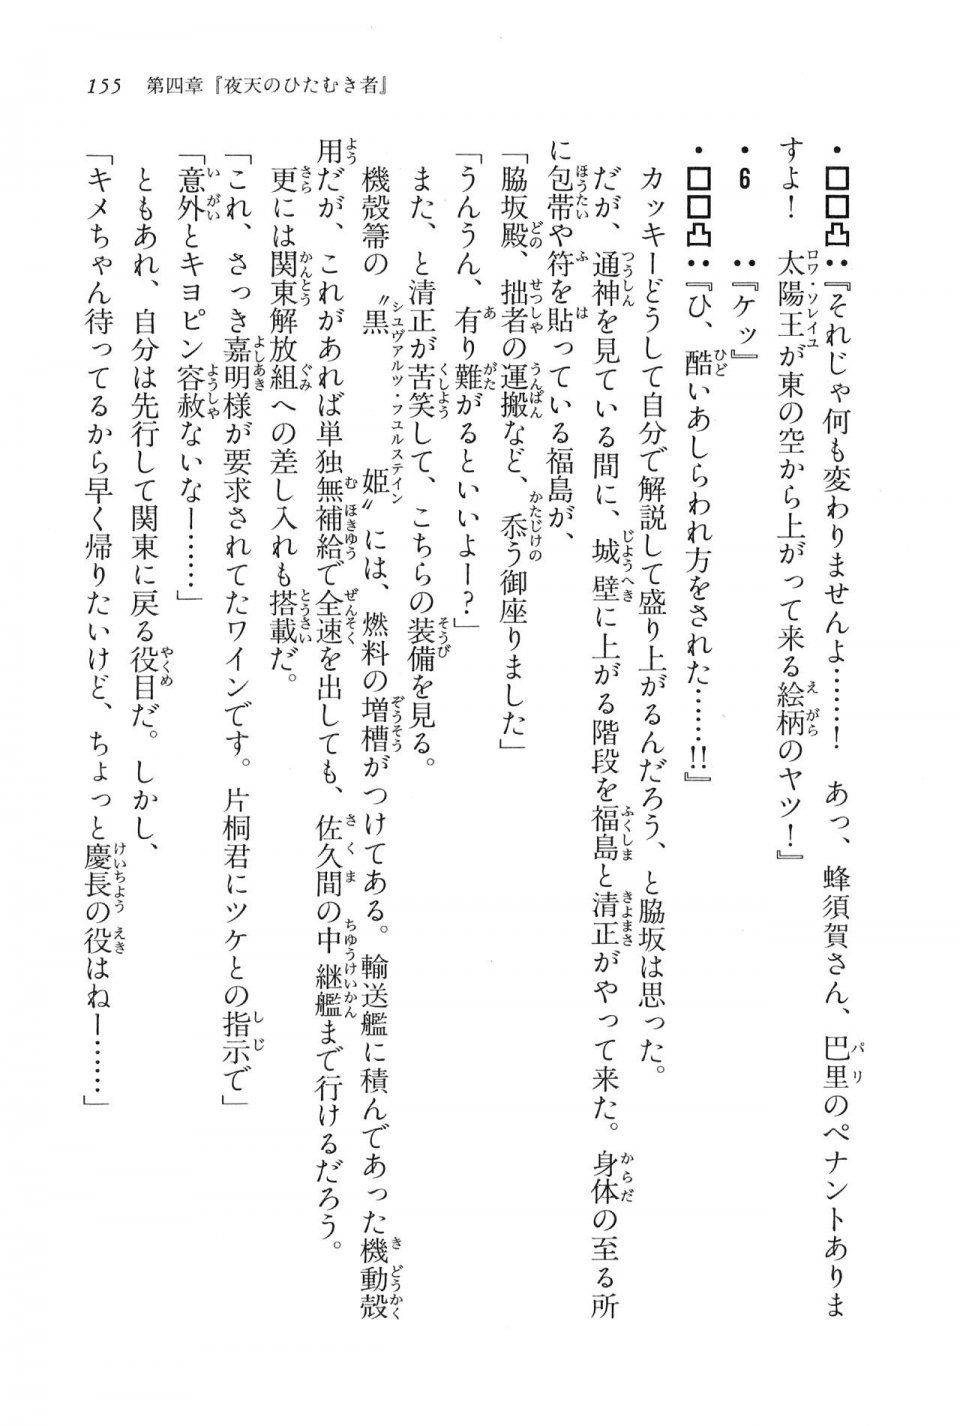 155　第四章『夜天のひたむき者』
・□□凸：『それじゃ何も変わりませんよ……！　あっ、蜂須賀さん、巴里のペナントありま
すよ！　太陽王が東の空から上がって来る絵柄のヤツ！』
・６　　：『ケッ』
・□□凸：『ひ、酷いあしらわれ方をされた……!!』
カッキーどうして自分で解説して盛り上がるんだろう、と脇坂は思った。
だが、通神を見ている間に、城壁に上がる階段を福島と清正がやって来た。身体の至る所
に包帯や符を貼っている福島が、
「脇坂殿、拙者の運搬など、忝う御座りました」
「うんうん、有り難がるといいよー？」
また、と清正が苦笑して、こちらの装備を見る。
機殻箒の〝黒姫〟には、燃料の増槽がつけてある。輸送艦に積んであった機動殻
用だが、これがあれば単独無補給で全速を出しても、佐久間の中継艦まで行けるだろう。
更には関東解放組への差し入れも搭載だ。
「これ、さっき嘉明様が要求されてたワインです。片桐君にツケとの指示で」
「意外とキヨピン容赦ないなー……」
ともあれ、自分は先行して関東に戻る役目だ。しかし、
「キメちゃん待ってるから早く帰りたいけど、ちょっと慶長の役はねー……」